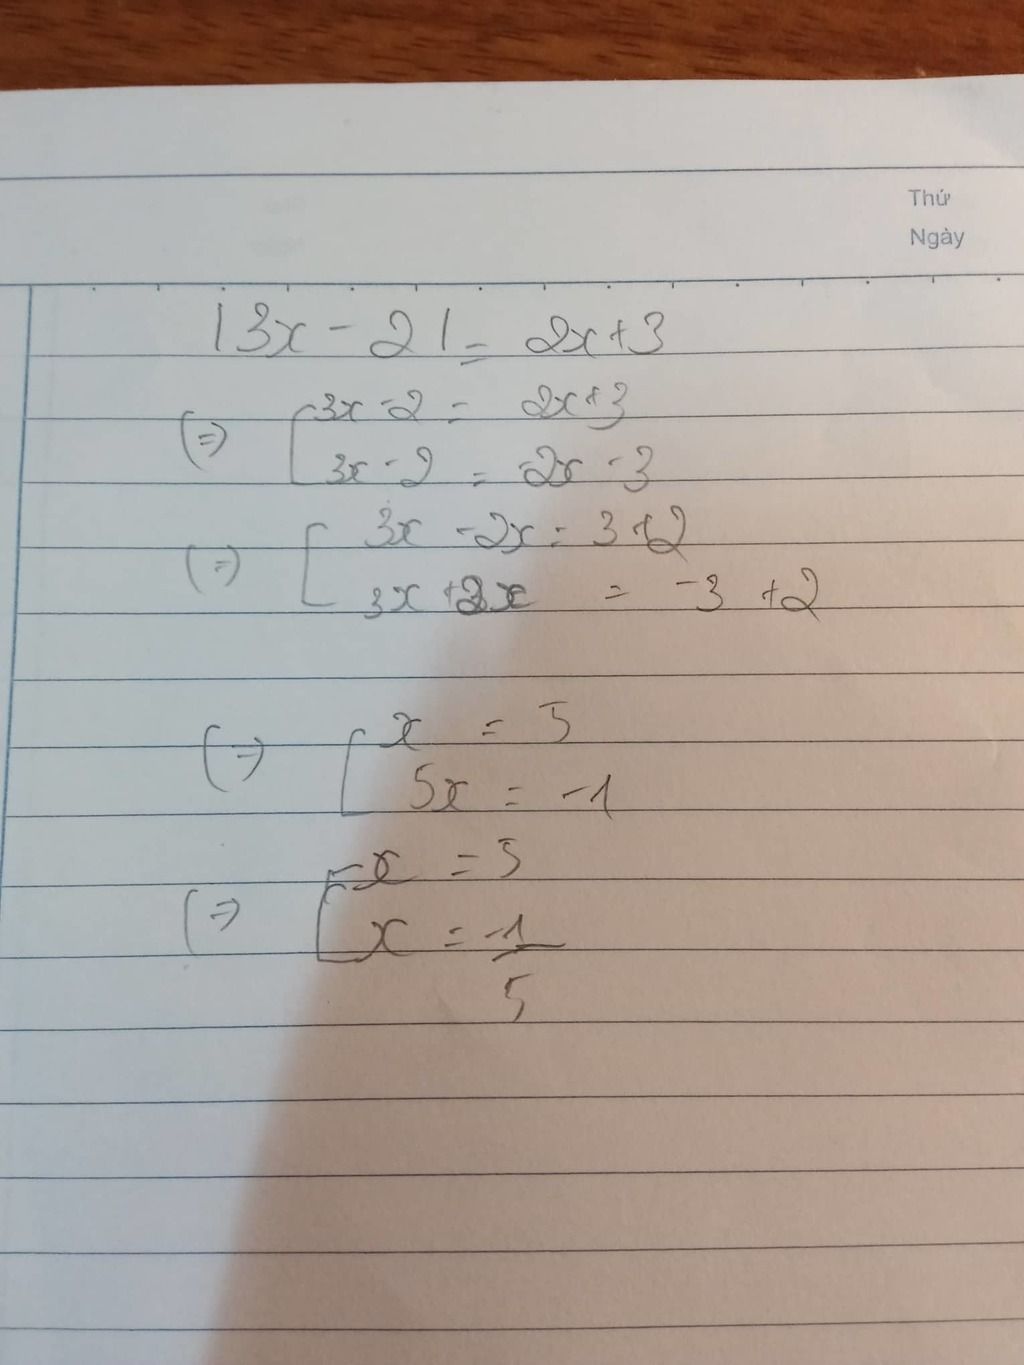 Thứ
Ngày
|3x - 2| = 2x+3
(=) [ 3x - 2 = 2x+3
3x - 2 = -2x - 3
(=) [ 3x - 2x = 3+2
3x +2x = -3 +2
(=) [ x = 5
5x = -1
(=) [ x = 5
x = -1/5